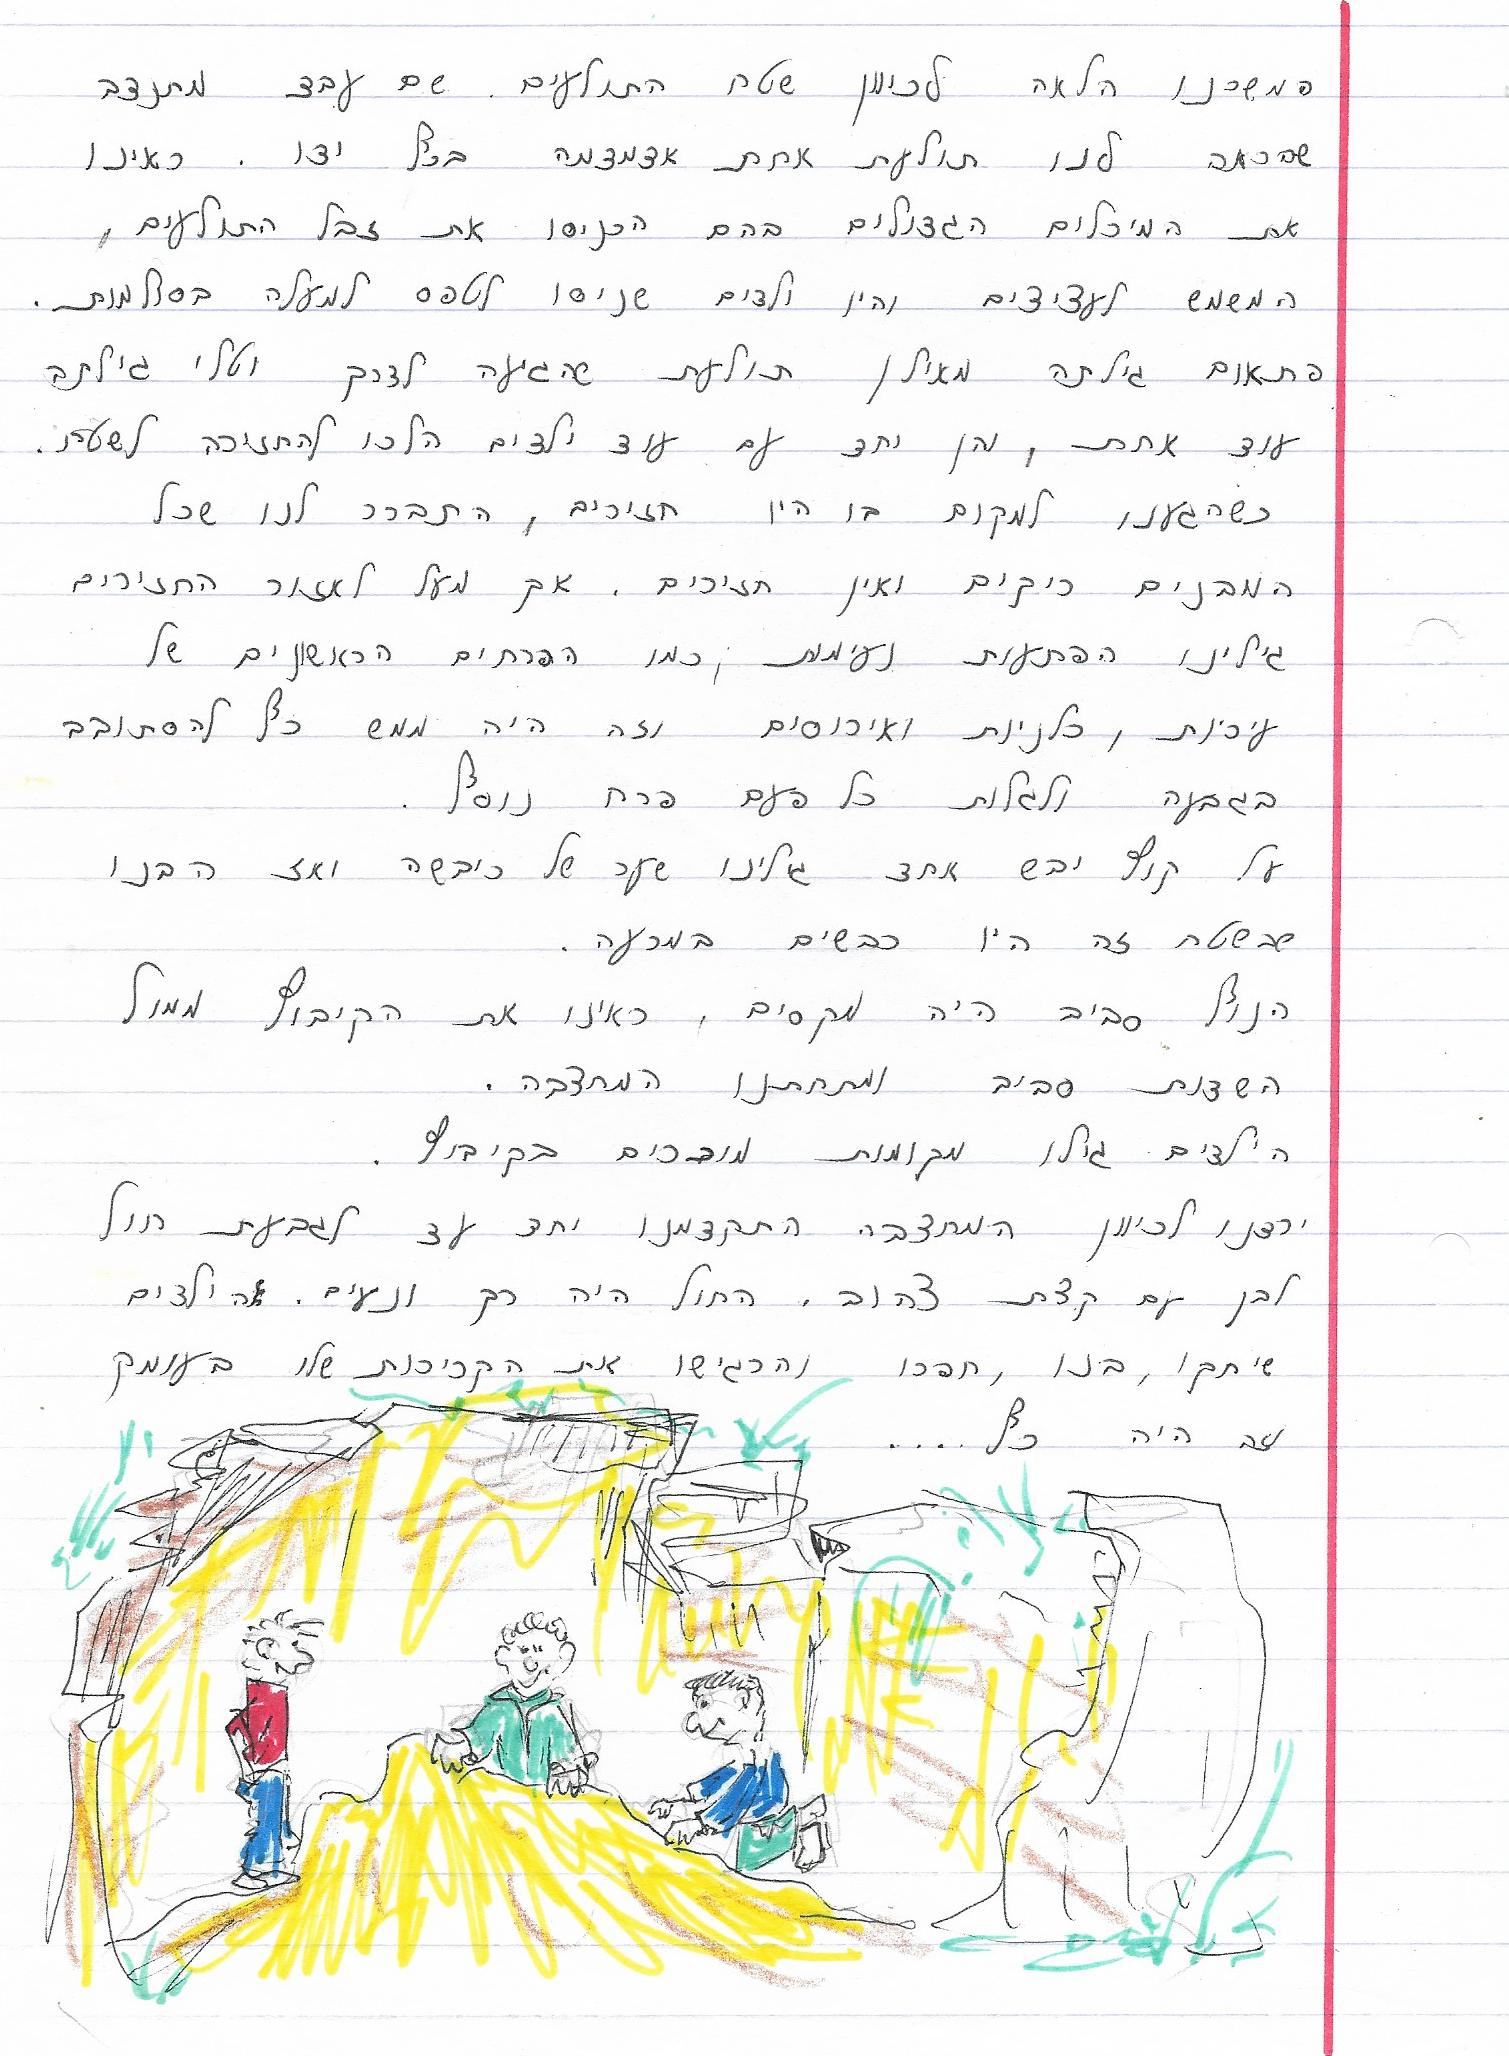 המשכנו הלאה לכיוון שטח התולעים. שם עבד מתנדב
שהראה לנו תולעת אחת אדמדמה בכף ידו. ראינו
את המיכלים הגדולים בהם הכניסו את זבל התולעים,
המשמש לעציצים והיו ילדים שניסו לטפס למעלה בסולמות.
פתאום גילתה מאילן תולעת שהגיעה לדרך וטלי גילתה
עוד אחת, והן יחד עם עוד ילדים הלכו להחזירה לשטח.
כשהגענו למקום בו היו חזירים, התברר לנו שכל
המבנים ריקים ואין חזירים. אך מעל לאזור החזירים
גילינו הפתעות נעימות, כמו הפרחים הראשונים של
עיריות, כלניות ואירוסים וזה היה ממש כיף להסתובב
בגבעה ולגלות כל פעם פרח נוסף.
על קוץ יבש אחד גילינו שער של כיבשה ואז הבנו
שבשטח זה היו כבשים במרעה.
הנוף סביב היה מקסים, ראינו את הקיבוץ ממול
השדות סביב ומתחתנו המחצבה.
הילדים גילו מקומות מוכרים בקיבוץ.
ירדנו לכיוון המחצבה התקדמנו יחד עד לגבעת חול
לבן עם קצת צהוב. החול היה רך ונעים. הילדים
שיחקו, בנו, חפרו והרגישו את הקרירות שלו בעומק
זה היה כיף....